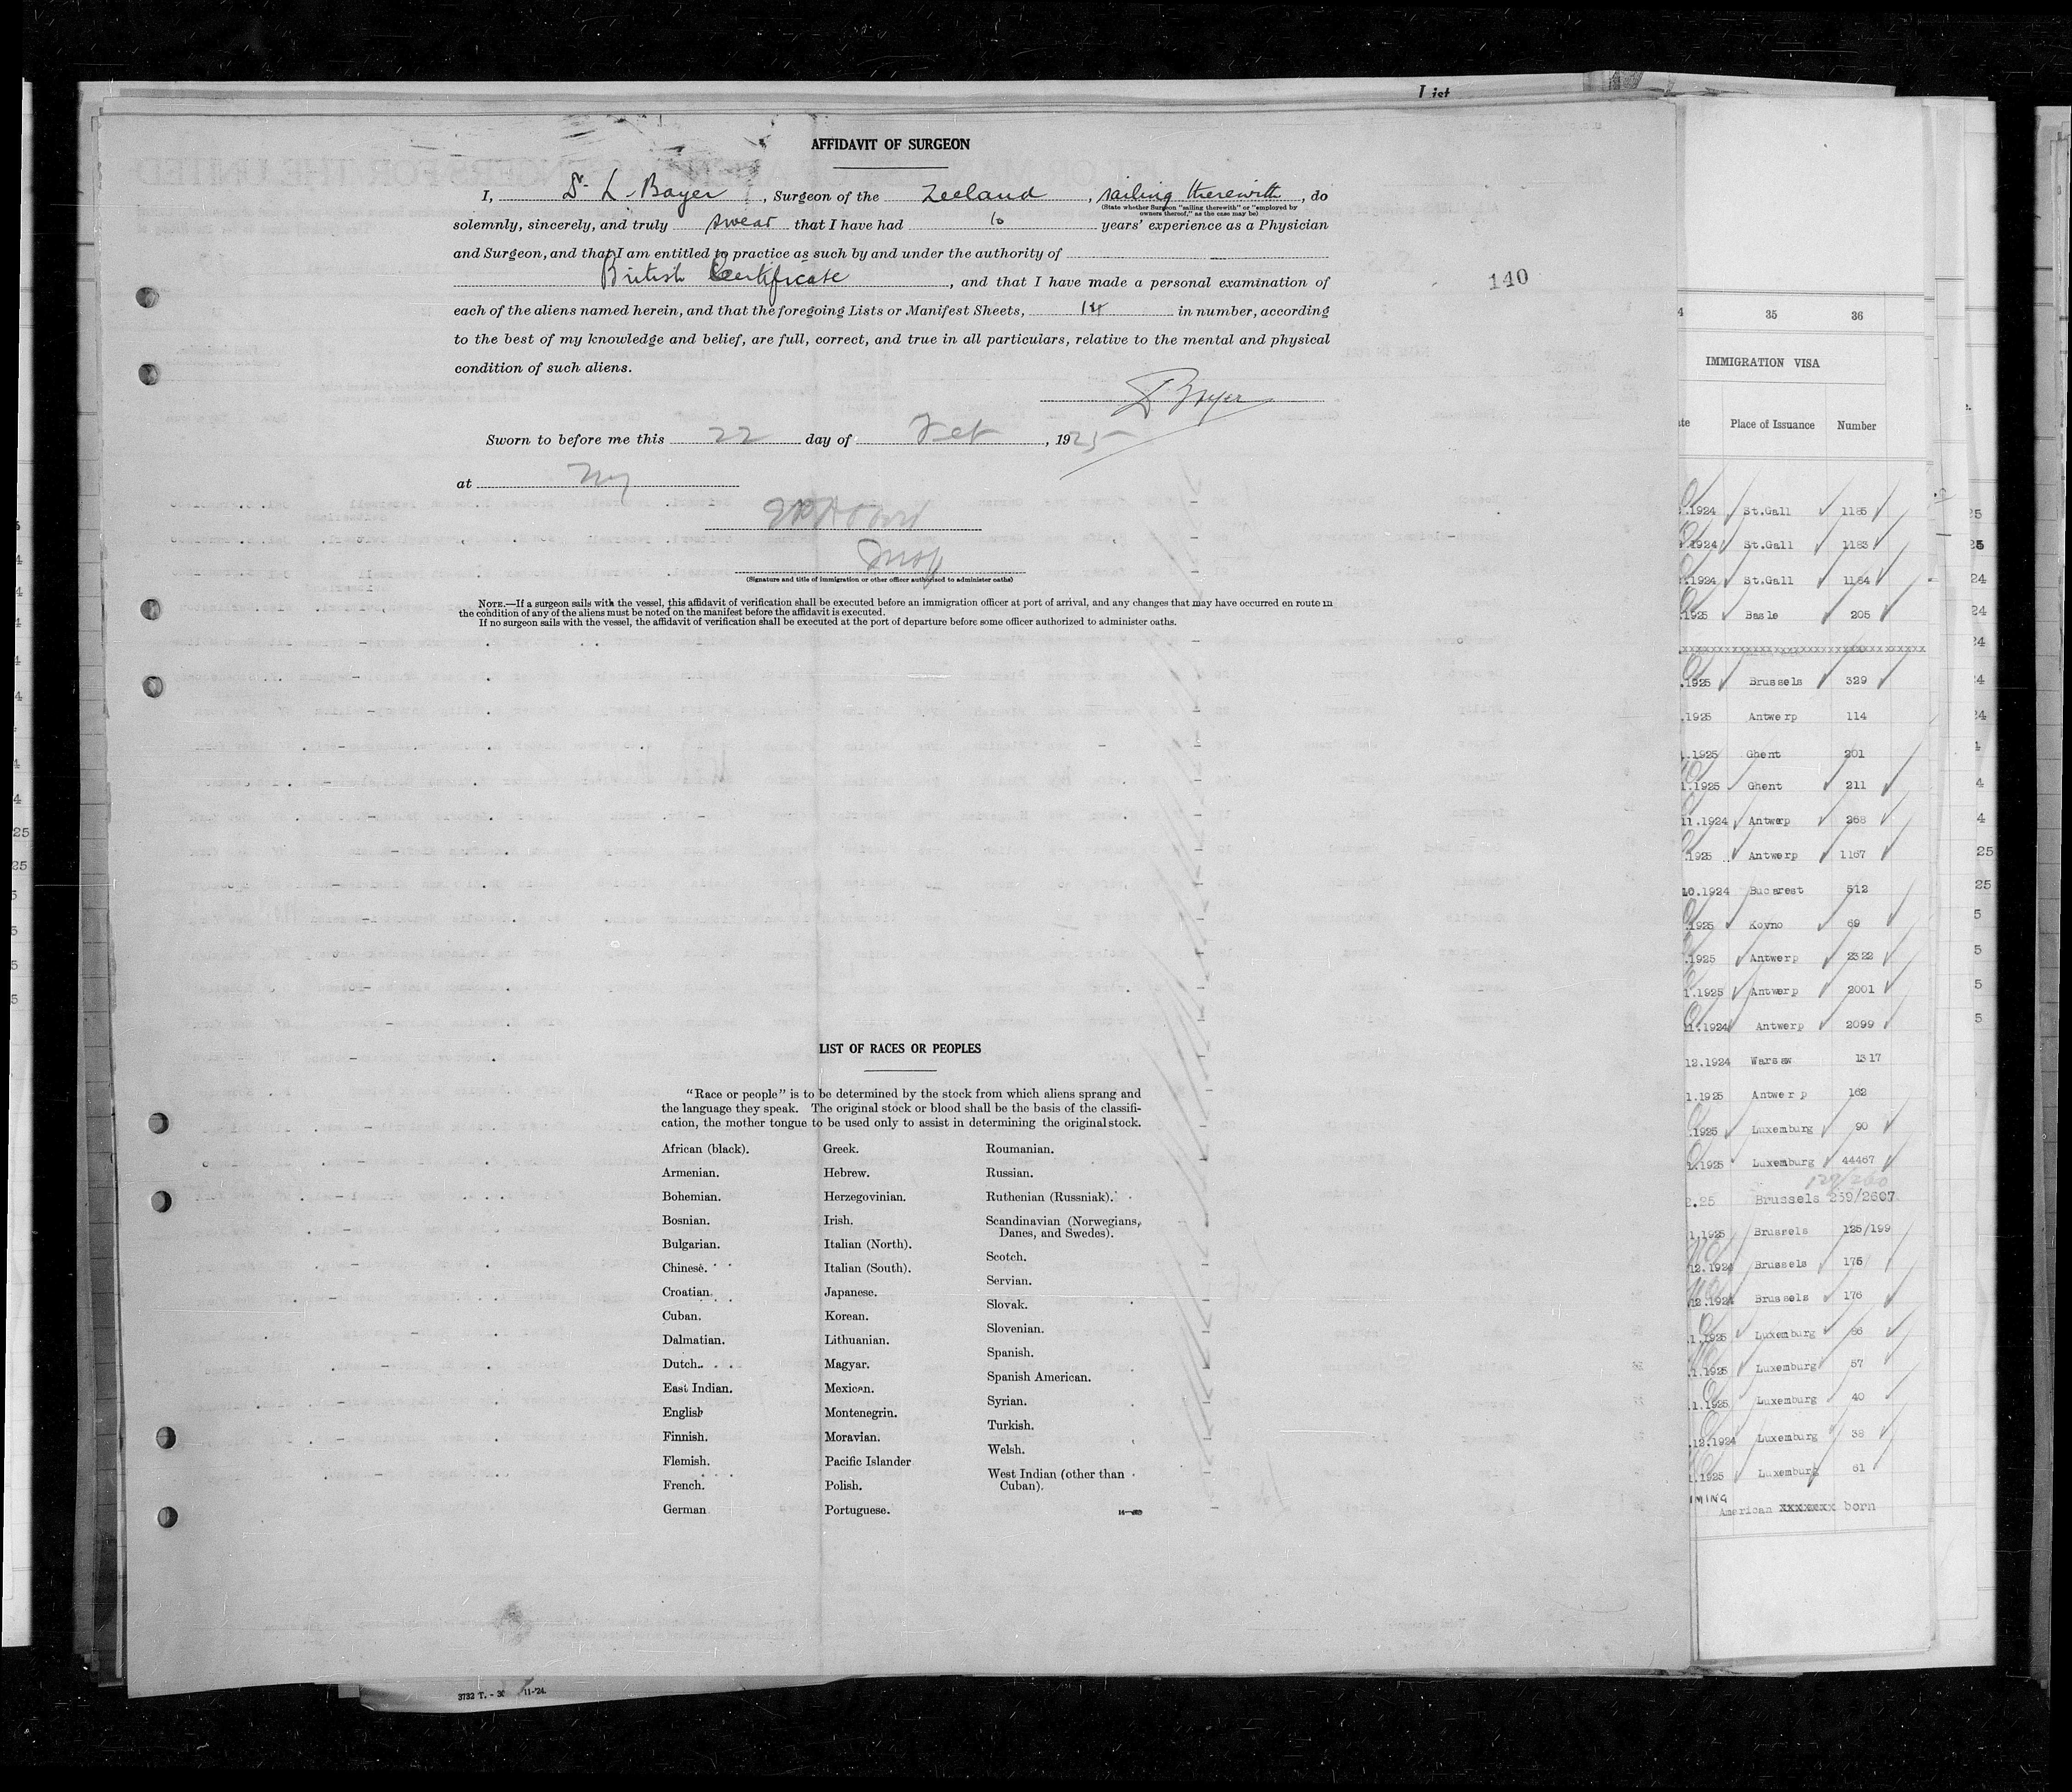 List
AFFIDAVIT OF SURGEON
I, L. Boyer, Surgeon of the Zeeland, sailing therewith, do
(State whether Surgeon "sailing therewith" or "employed by
owners thereof," as the case may be)
solemnly, sincerely, and truly swear that I have had 10 years' experience as a Physician
and Surgeon, and that I am entitled to practice as such by and under the authority of
British Certificate, and that I have made a personal examination of
140
each of the aliens named herein, and that the foregoing Lists or Manifest Sheets, 14 in number, according
to the best of my knowledge and belief, are full, correct, and true in all particulars, relative to the mental and physical
condition of such aliens.
Boyer
Sworn to before me this 22 day of Feb, 1925
at NY
Insp
(Signature and title of immigration or other officer authorized to administer oaths)
NOTE.—If a surgeon sails with the vessel, this affidavit of verification shall be executed before an immigration officer at port of arrival, and any changes that may have occurred en route in
the condition of any of the aliens must be noted on the manifest before the affidavit is executed.
If no surgeon sails with the vessel, the affidavit of verification shall be executed at the port of departure before some officer authorized to administer oaths.
LIST OF RACES OR PEOPLES
"Race or people" is to be determined by the stock from which aliens sprang and
the language they speak. The original stock or blood shall be the basis of the classifi-
cation, the mother tongue to be used only to assist in determining the original stock.
African (black).
Armenian.
Bohemian.
Bosnian.
Bulgarian.
Chinese.
Croatian.
Cuban.
Dalmatian.
Dutch.
East Indian.
English
Finnish.
Flemish.
French.
German
Greek.
Hebrew.
Herzegovinian.
Irish.
Italian (North).
Italian (South).
Japanese.
Korean.
Lithuanian.
Magyar.
Mexican.
Montenegrin.
Moravian.
Pacific Islander
Polish.
Portuguese.
Roumanian.
Russian.
Ruthenian (Russniak).
Scandinavian (Norwegians,
Danes, and Swedes).
Scotch.
Servian.
Slovak.
Slovenian.
Spanish.
Spanish American.
Syrian.
Turkish.
Welsh.
West Indian (other than
Cuban).
3732 T. - 11-'24.
4 35 36
IMMIGRATION VISA
te Place of Issuance Number
.1924 St.Gall 1185
.1924 St.Gall 1183
.1924 St.Gall 1184
.1925 Basle 205
.1925 Brussels 329
.1925 Antwerp 114
.1925 Ghent 201
1.1925 Ghent 211
11.1924 Antwerp 268
.1925 Antwerp 1167
10.1924 Bucarest 512
.1925 Kovno 69
.1925 Antwerp 2322
1.1925 Antwerp 2001
11.1924 Antwerp 2099
12.1924 Warsaw 1317
1.1925 Antwerp 162
.1925 Luxemburg 90
1.1925 Luxemburg 44467
129/200
2.25 Brussels 259/2607
1.1925 Brussels 125/199
12.1924 Brussels 175
12.1924 Brussels 176
.1.1925 Luxemburg 86
.1.1925 Luxemburg 57
.1.1925 Luxemburg 40
.12.1924 Luxemburg 38
1.1925 Luxemburg 61
American xxxxxxx born